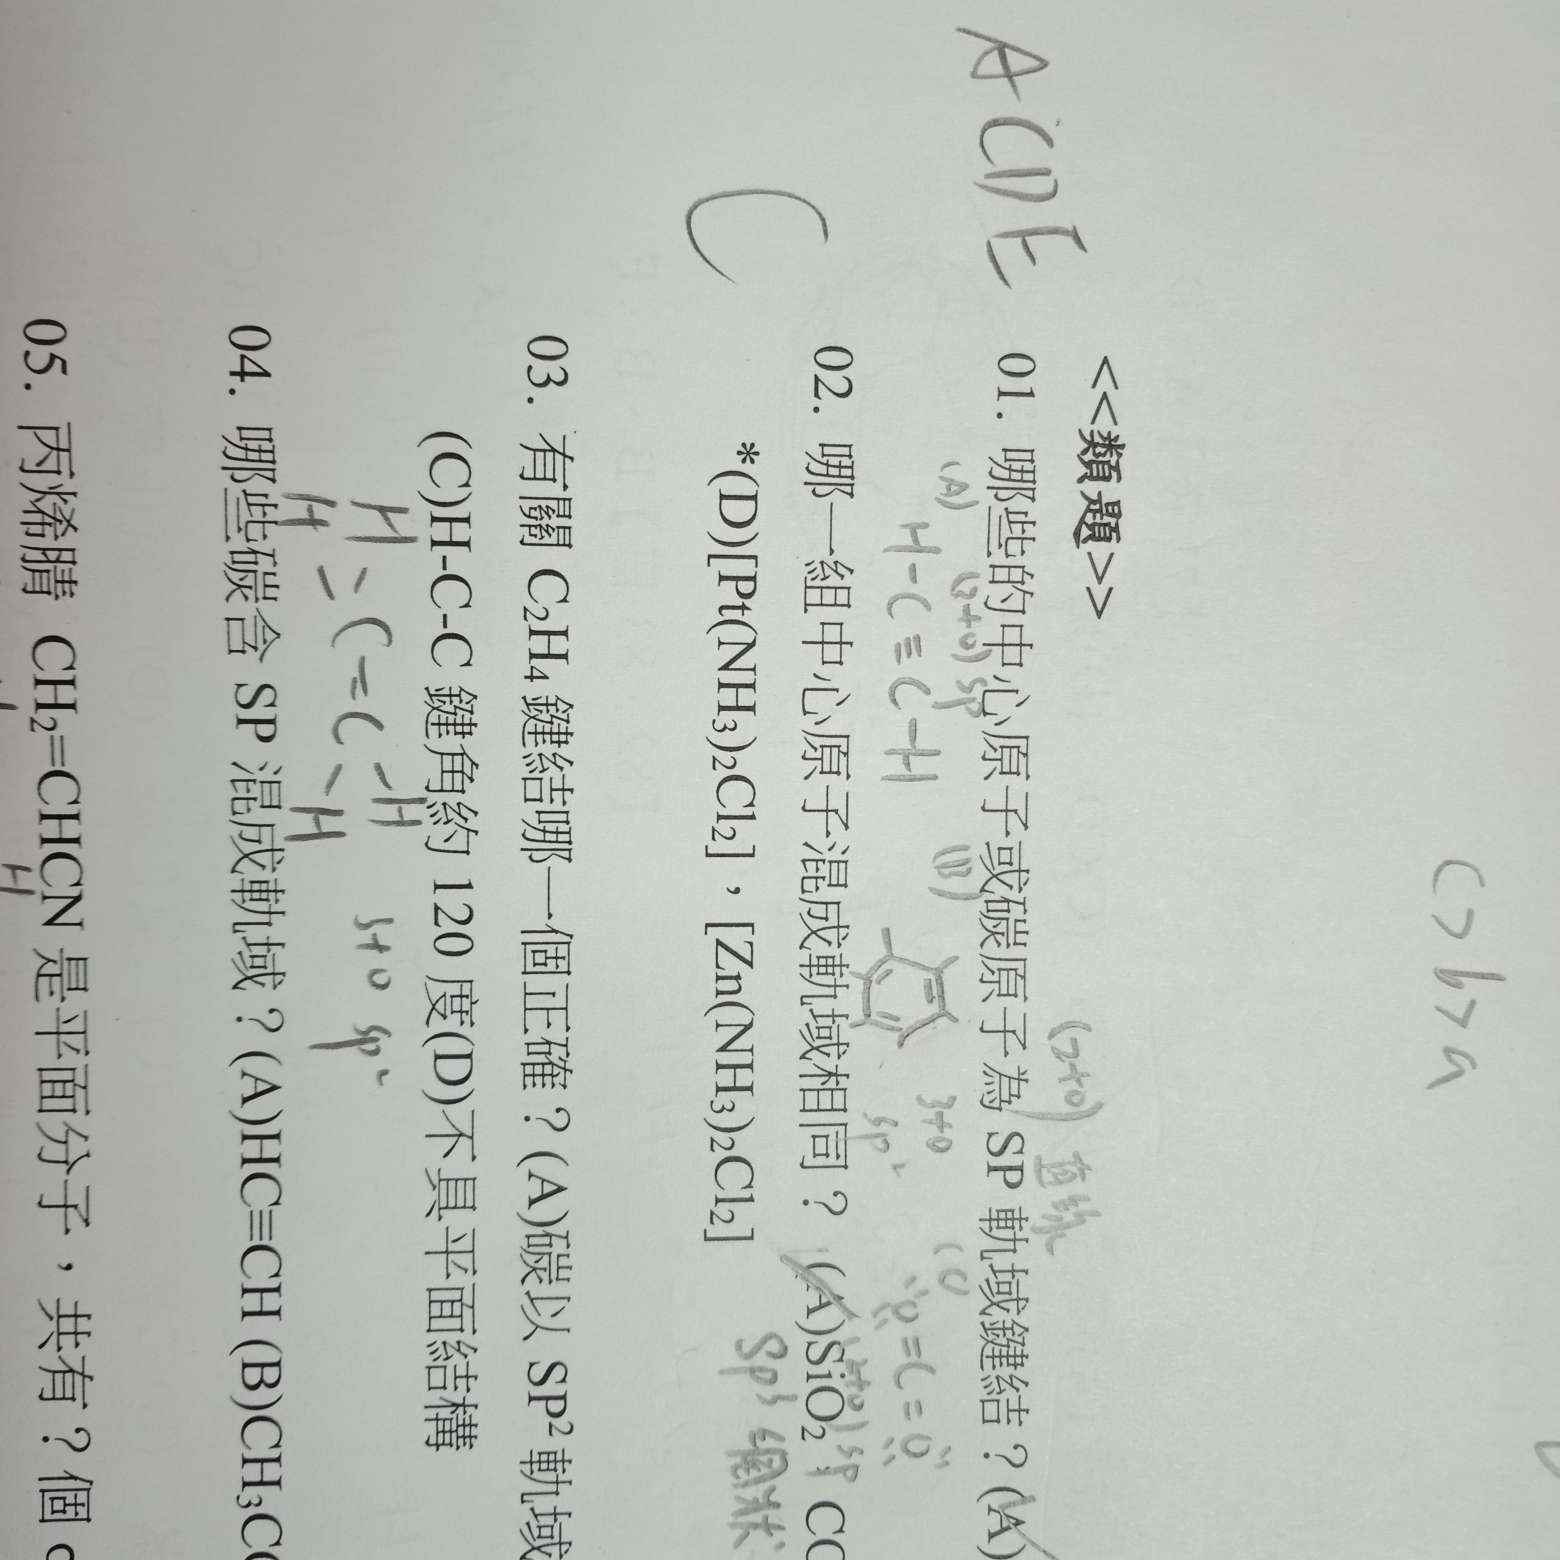 C>b>a
<<類題>>
(2+0) 直線
ACDE
01. 哪些的中心原子或碳原子為 SP 軌域鍵結？(A)
(A) (2+0) sp
H-C≡C-H
(B)
3+0
sp²
(C)
O=C=O
(2+0) sp
C
02. 哪一組中心原子混成軌域相同？ (A)SiO₂，CO
*(D)[Pt(NH₃)₂Cl₂]，[Zn(NH₃)₂Cl₂]
Sp³ 網狀
03. 有關 C₂H₄ 鍵結哪一個正確？(A)碳以 SP² 軌域
(C)H-C-C 鍵角約 120 度(D)不具平面結構
H H
C=C
H H
3+0 sp²
04. 哪些碳含 SP 混成軌域？(A)HC≡CH (B)CH₃C
05. 丙烯腈 CH₂=CHCN 是平面分子，共有？個
H